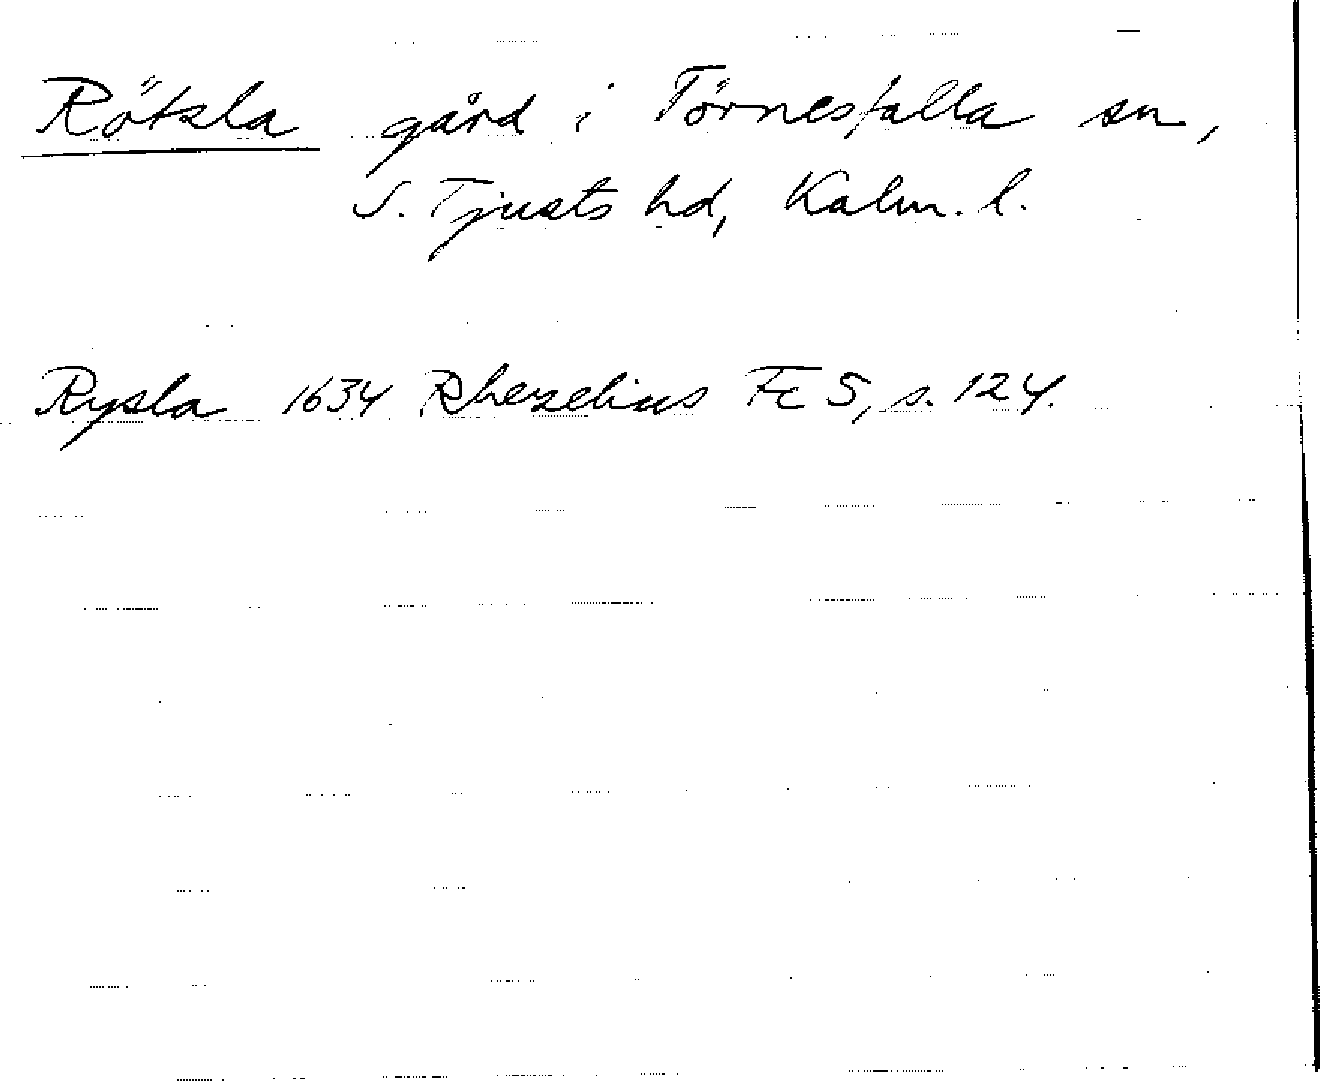 Rötsla gård i Törnesfalla sn,
S. Tjusts hd, Kalm. l.
Rysla 1634 Rhezelius FE 5, s. 124.